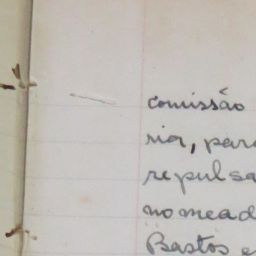 comissão
rior, para
repulsa
nomead
Bastos e